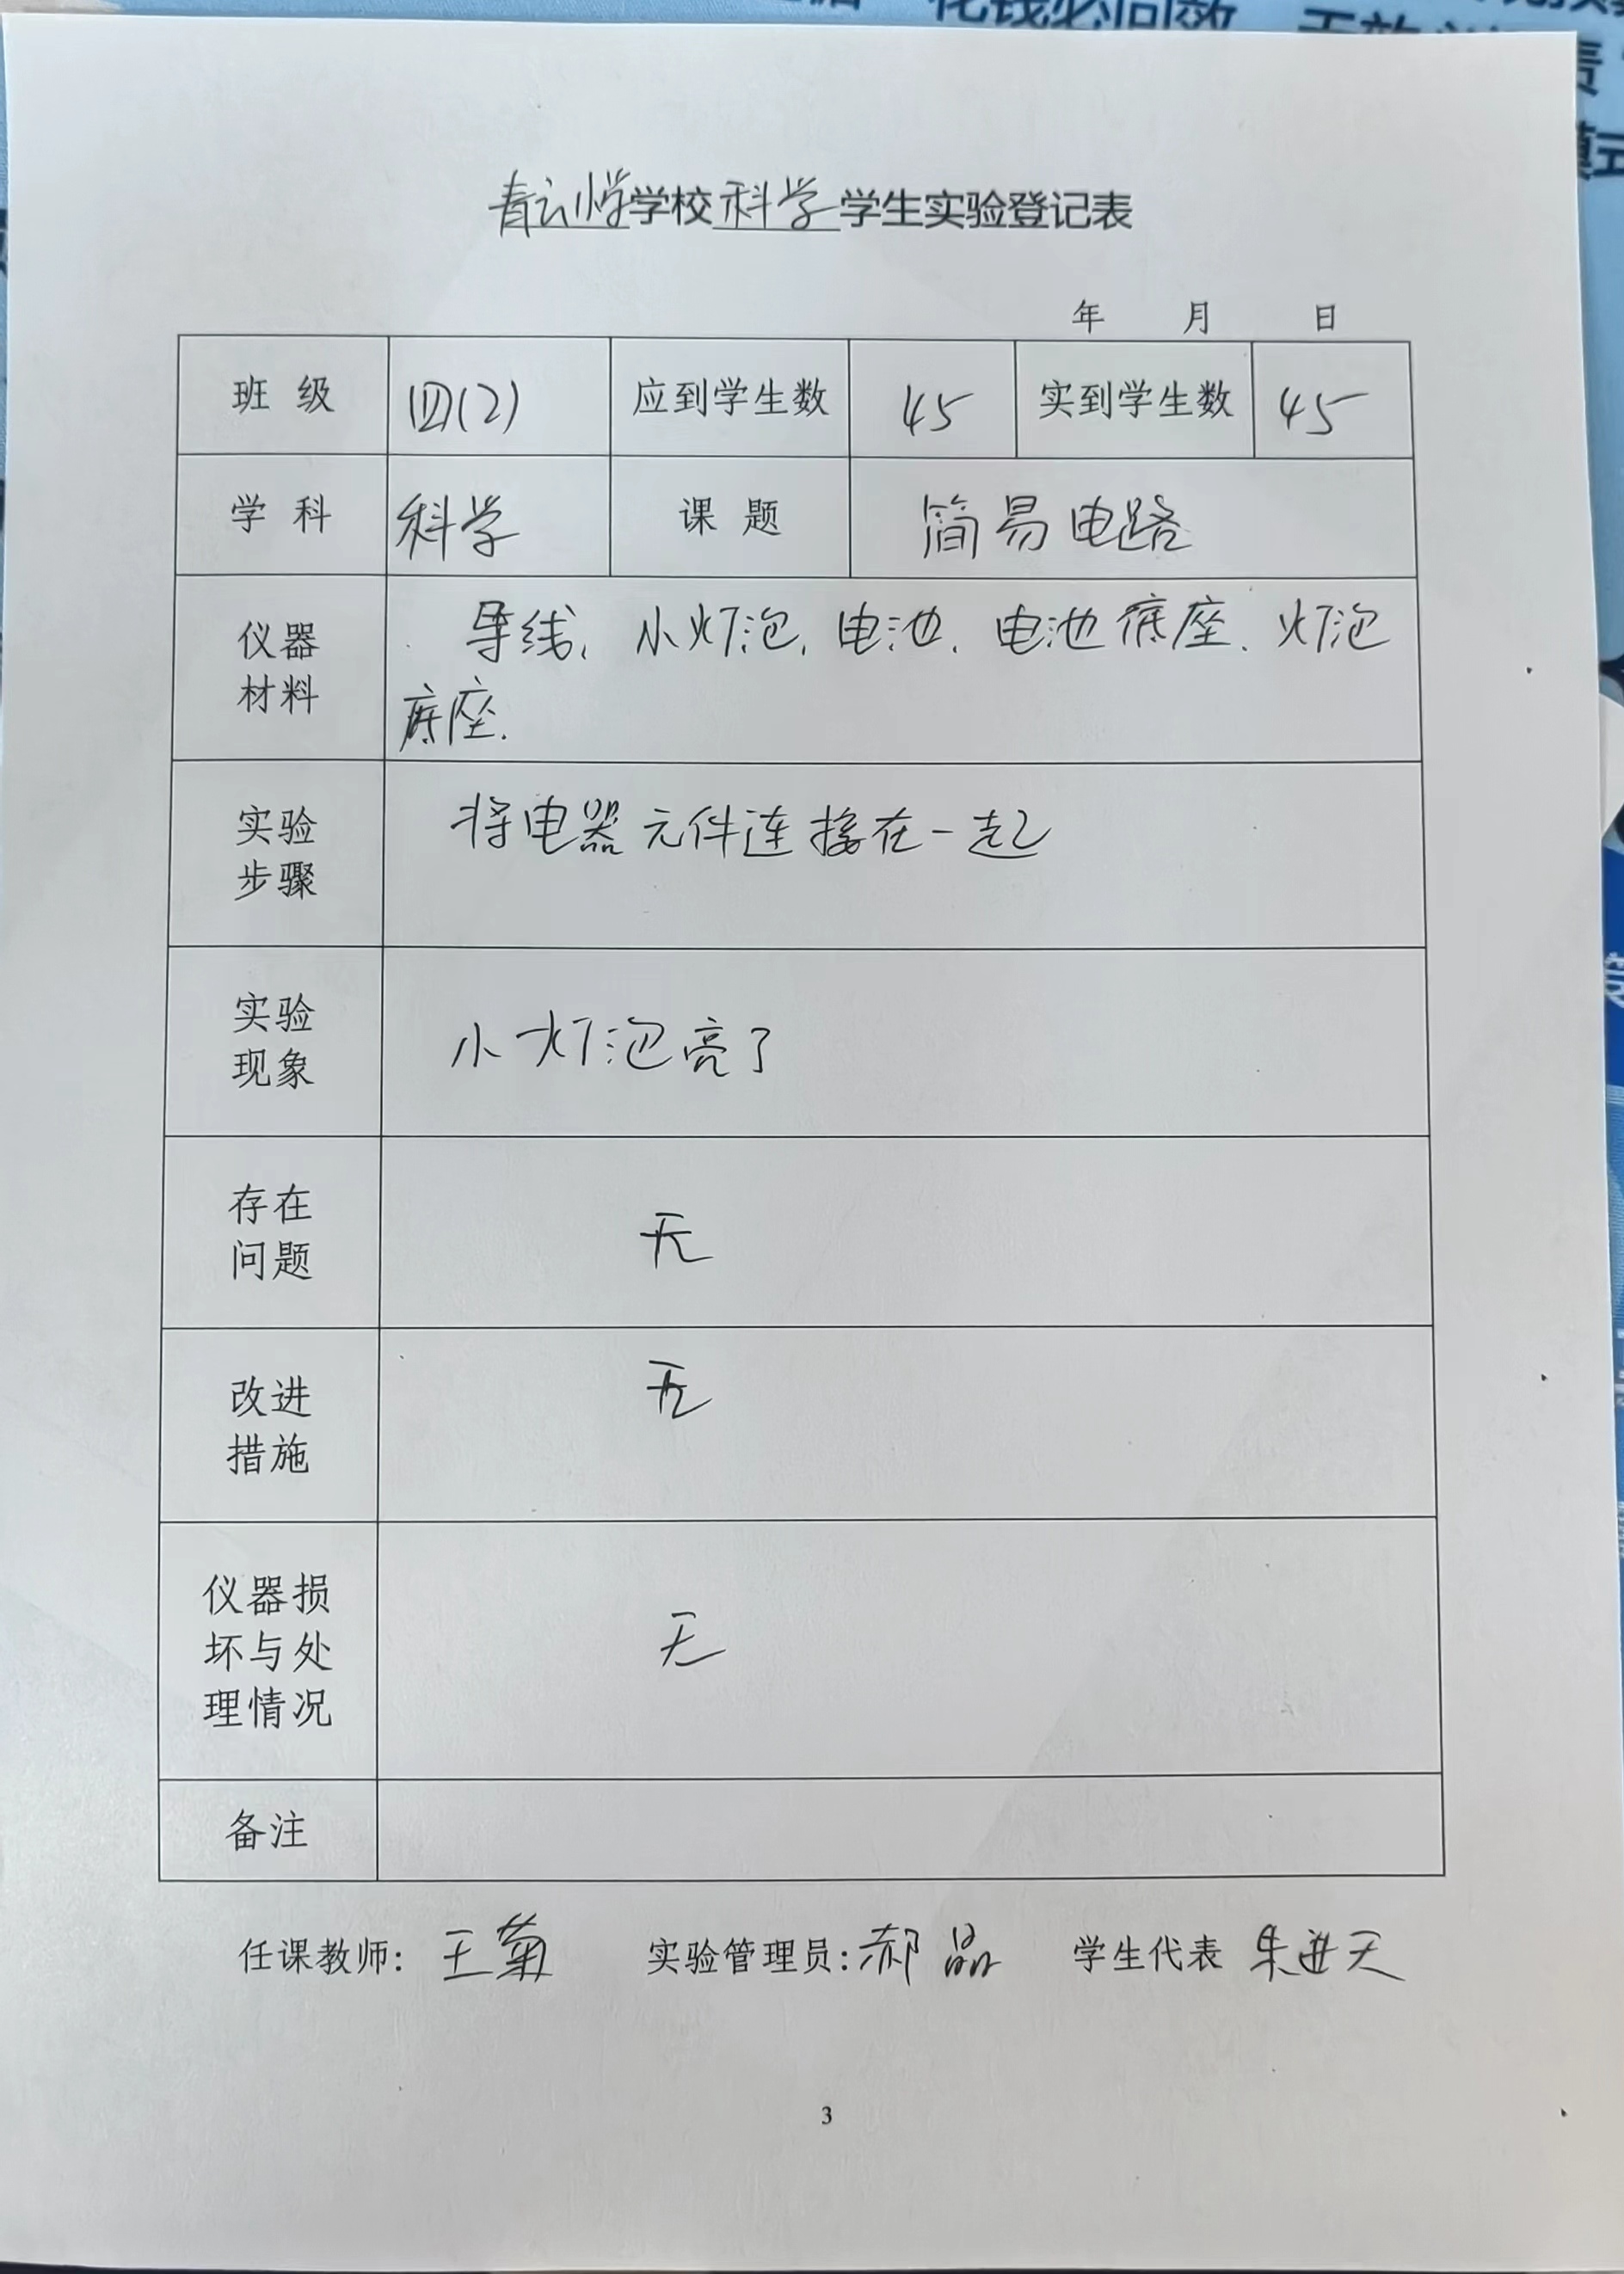 花钱必问效 无效
责
模式
青云小学学校科学学生实验登记表
年 月 日
班级 四(2) 应到学生数 45 实到学生数 45
学科 科学 课题 简易电路
仪器材料 导线、小灯泡、电池、电池底座、灯泡
底座.
实验步骤 将电器元件连接在一起
实验现象 小灯泡亮了
存在问题 无
改进措施 无
仪器损坏与处理情况 无
备注
任课教师: 王菊 实验管理员: 郝晶 学生代表 朱进天
3